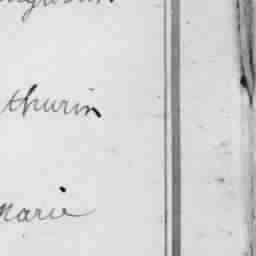 thurin
Marie